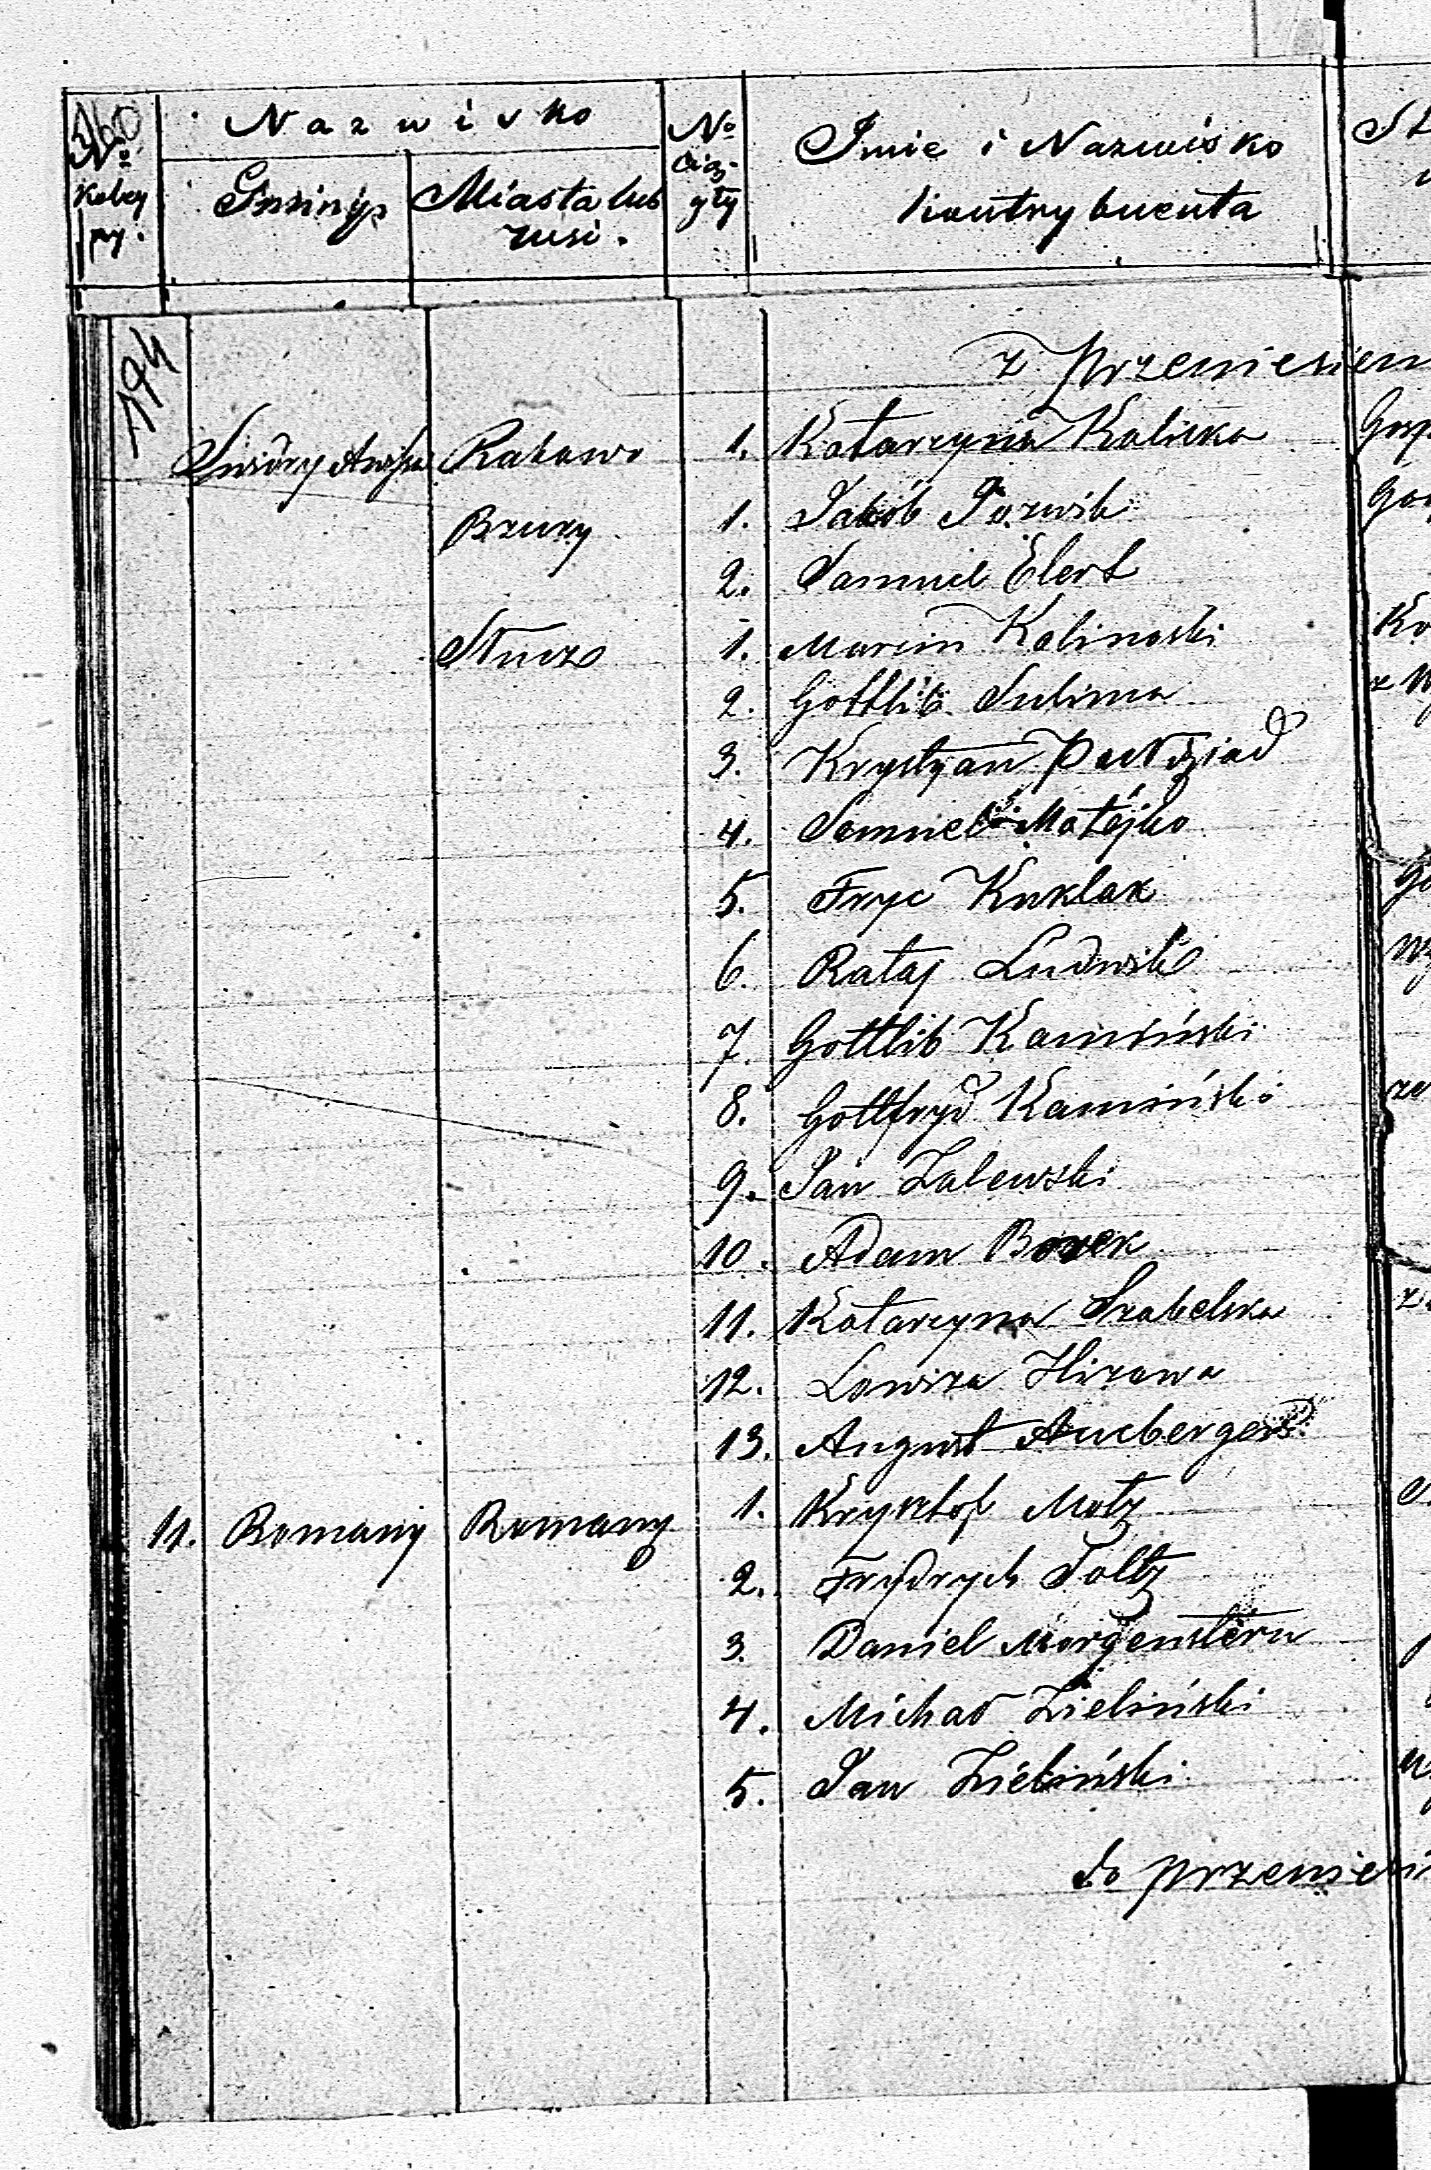 160
No kolej py.
Nazwisko
Gminy
Miasta lub wsi.
No ciągły
Imie i Nazwisko kontrybuenta
194
z przeniesien
Rakowo 1. Katarzyna Kalicka
Bzury 1. Jakób Jozwik
2. Samuel Elert
Stucz 1. Marcin Kalinoski
2. Gottlib Sulima
3. Krystyan
4. Samuel Matejko
5. Fryc Kuklak
6. Rataj Ludwik
7. Gottlib Kamiński
8. Gottfryd Kamiński
9. Jan Zalewski
10. Adam Borek
11. Katarzyna Szabelska
12. Lowiza
13. August
11. Romany Romany 1. Krysztof Motz
2. Frydrych Toltz
3. Daniel Morgenstern
4. Michał Zieliński
5. Jan Zieliński
do przeniesi